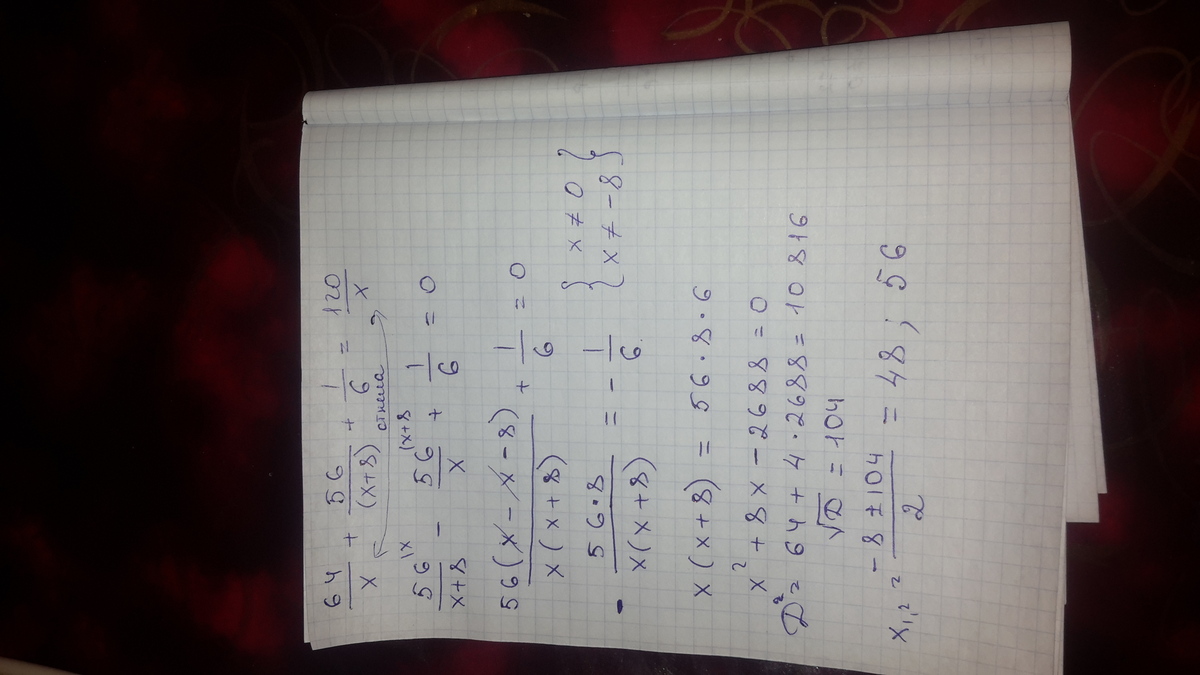 64/x + 56/(x+8) + 1/6 = 120/x
отняла
56^{|x}/(x+8) - 56^{(x+8}/x + 1/6 = 0
56(x - x - 8)/(x(x+8)) + 1/6 = 0
- 56·8/(x(x+8)) = - 1/6 { x ≠ 0 }
{ x ≠ -8 }
x(x+8) = 56·8·6
x² + 8x - 2688 = 0
D² = 64 + 4·2688 = 10816
√D = 104
x₁,₂ = (-8 ± 104)/2 = 48; 56